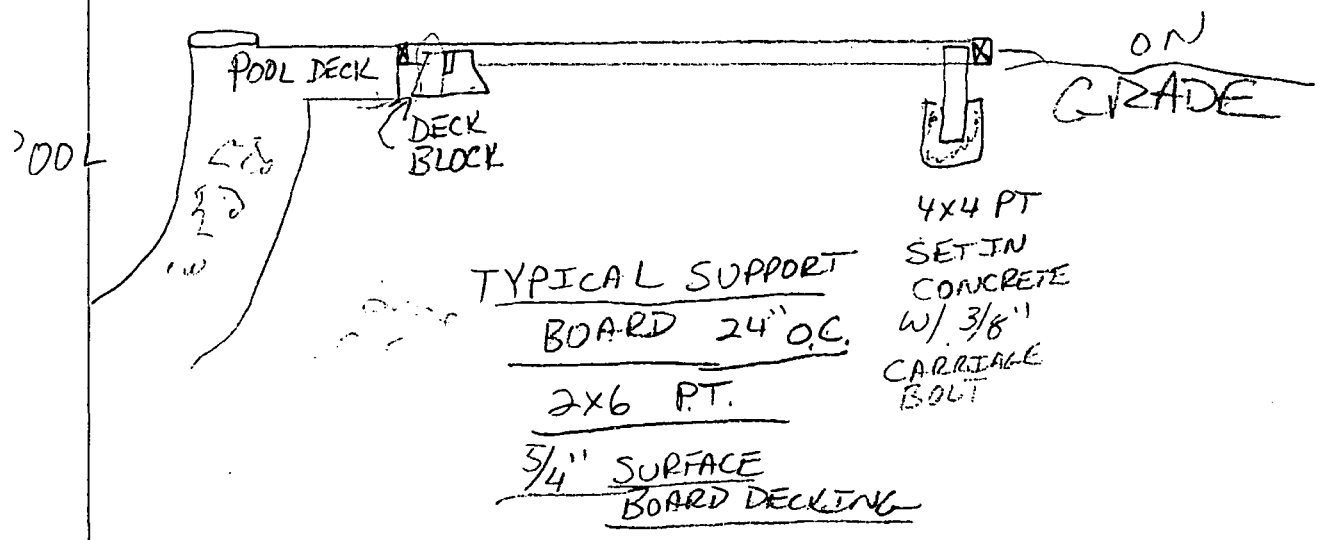 POOL DECK
DECK
BLOCK
ON
GRADE
4x4 PT
SET IN
CONCRETE
W/ 3/8"
CARRIAGE
BOLT
TYPICAL SUPPORT
BOARD 24" O.C.
2x6 P.T.
5/4" SURFACE
BOARD DECKING